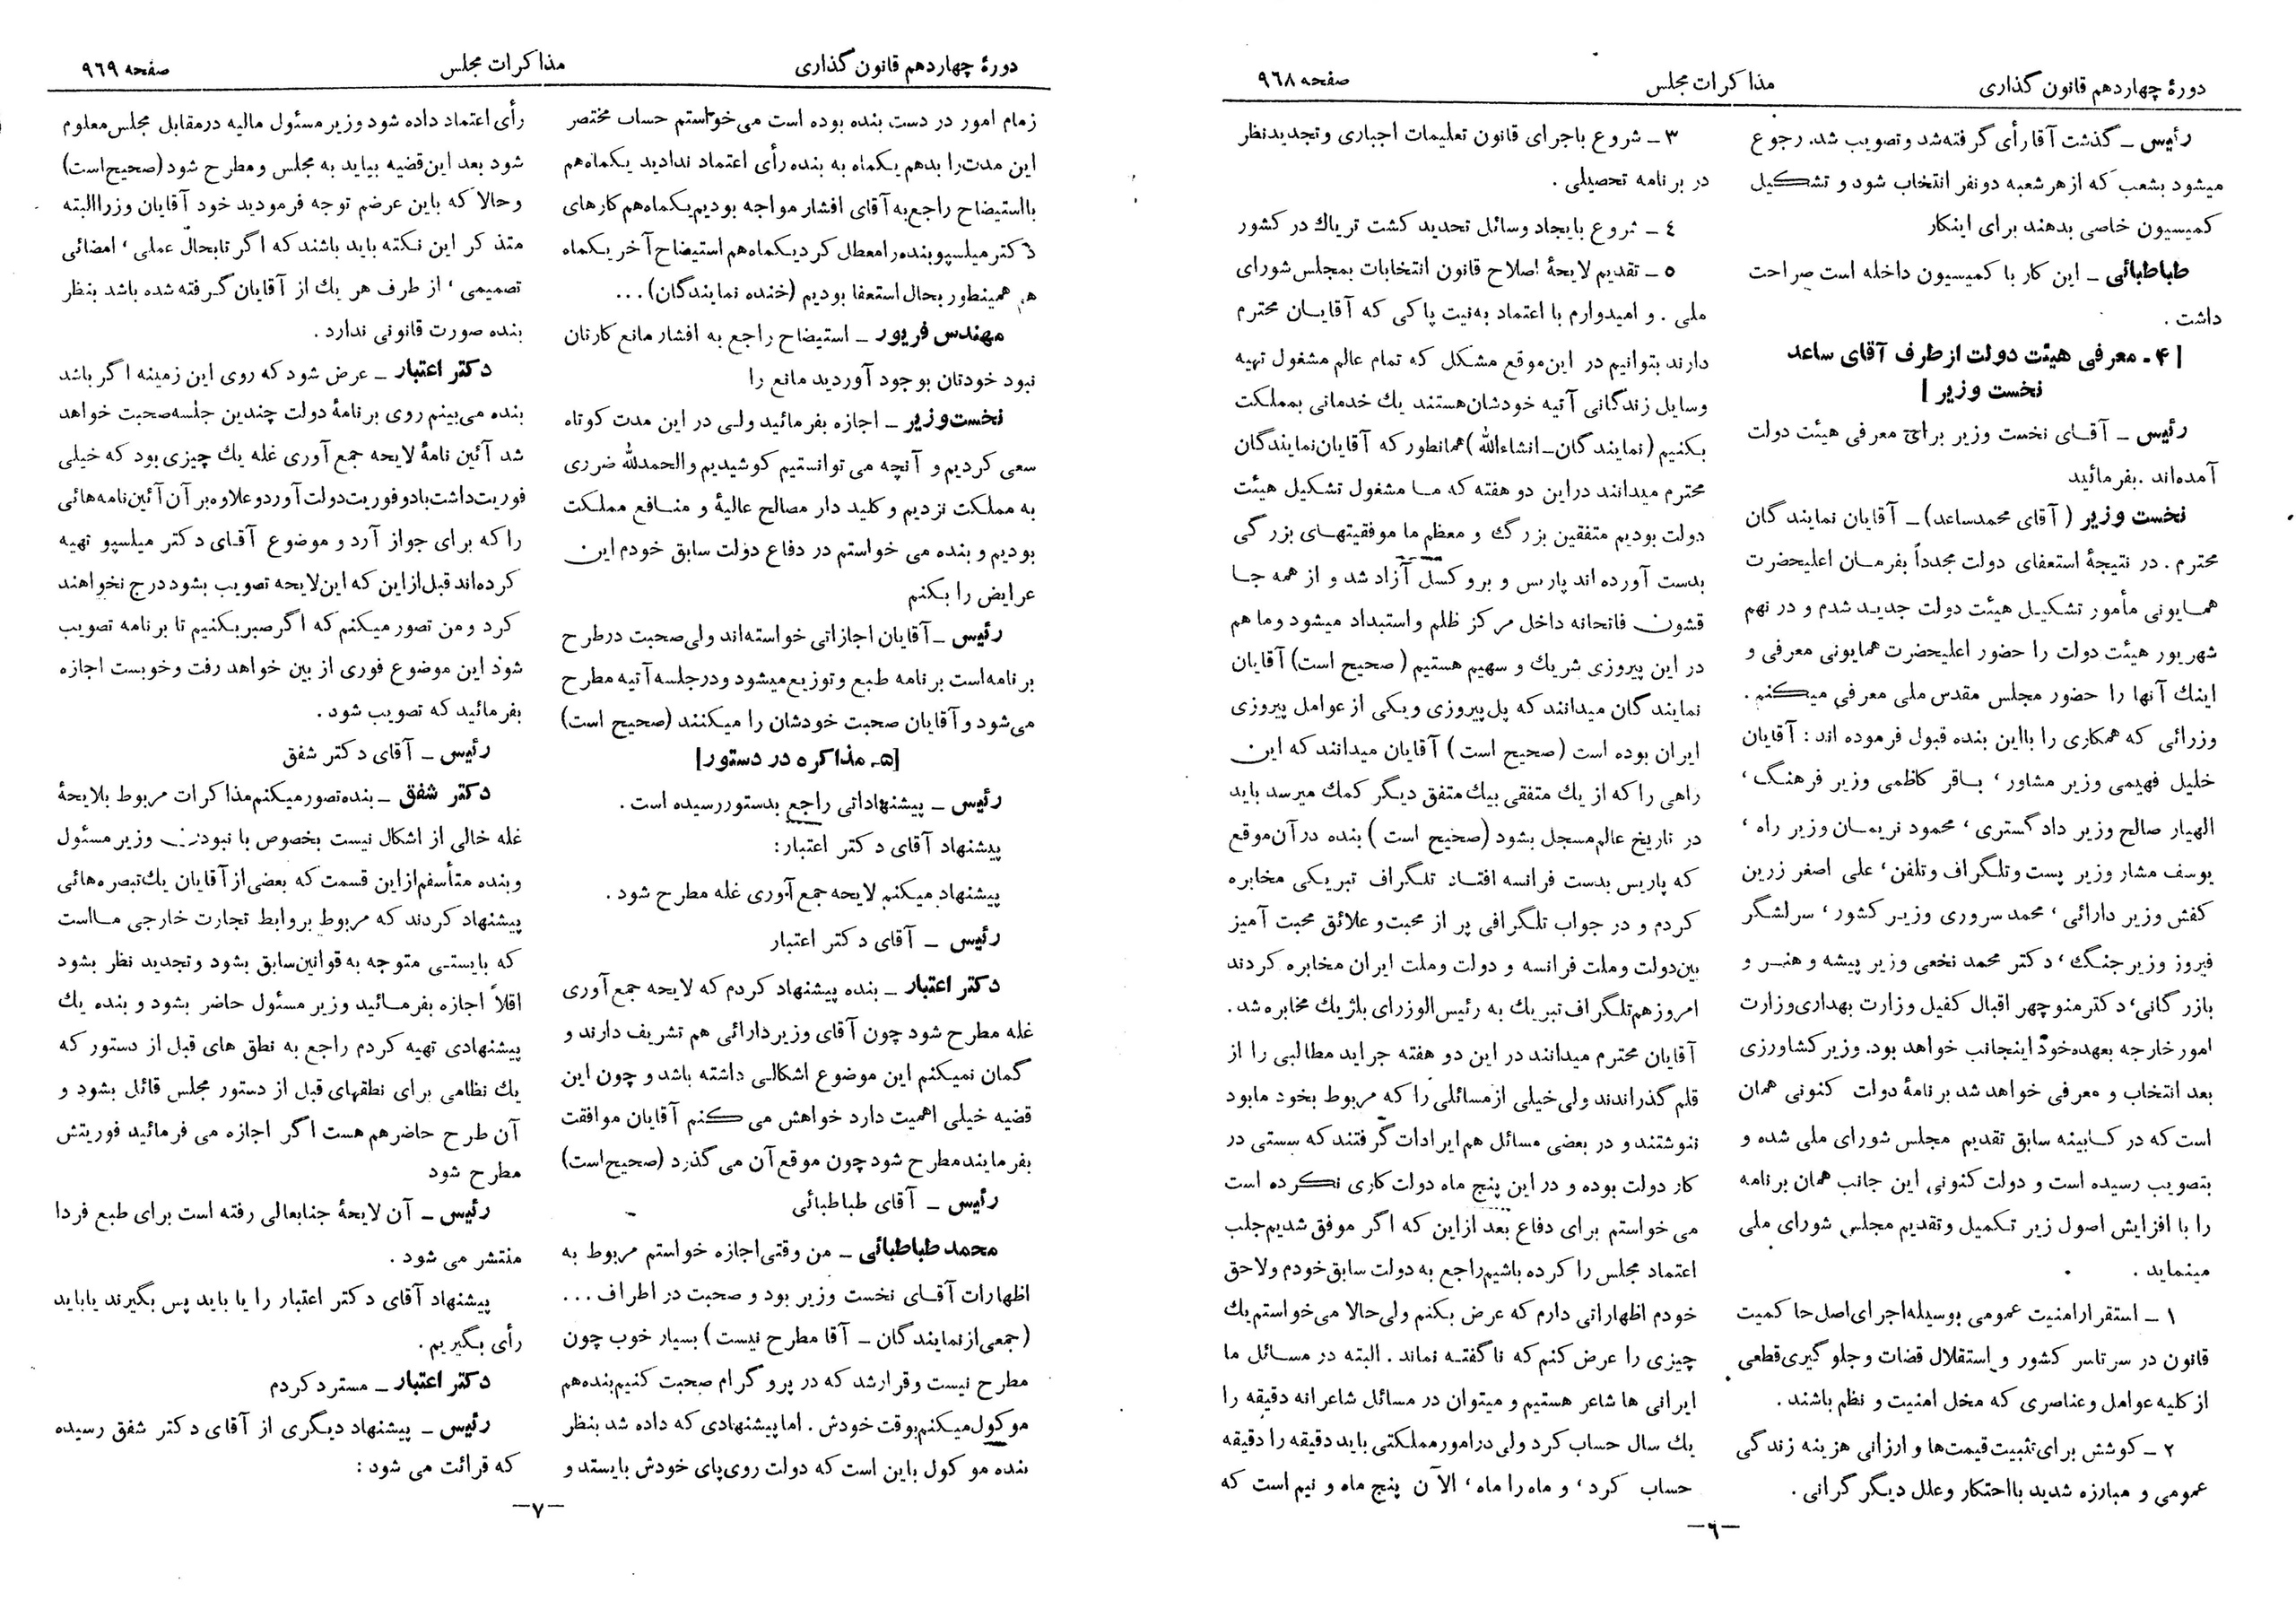 دورهٔ چهاردهم قانون گذاری
مذاکرات مجلس
صفحه ۹٦۸
رئیس ـ گذشت آقا رأی گرفته شد و تصویب شد. رجوع
میشود بشعب که از هر شعبه دو نفر انتخاب شود و تشکیل
کمیسیون خاصی بدهند برای اینکار
طباطبائی ـ این کار با کمیسیون داخله است صراحت
داشت .
[ ۴ ـ معرفی هیئت دولت از طرف آقای ساعد
نخست وزیر ]
رئیس ـ آقای نخست وزیر برای معرفی هیئت دولت
آمده‌اند . بفرمائید
نخست وزیر ( آقای محمد ساعد ) ـ آقایان نمایندگان
محترم . در نتیجهٔ استعفای دولت مجدداً بفرمان اعلیحضرت
همایونی مأمور تشکیل هیئت دولت جدید شدم و در نهم
شهریور هیئت دولت را حضور اعلیحضرت همایونی معرفی و
اینك آنها را حضور مجلس مقدس ملی معرفی میکنم .
وزرائی که همکاری را بااین بنده قبول فرموده اند : آقایان
خلیل فهیمی وزیر مشاور ، باقر کاظمی وزیر فرهنگ ،
الهیار صالح وزیر دادگستری ، محمود نریمان وزیر راه ،
یوسف مشار وزیر پست و تلگراف و تلفن ، علی اصغر زرین
کفش وزیر دارائی ، محمد سروری وزیر کشور ، سرلشگر
فیروز وزیر جنگ ، دکتر محمد نخعی وزیر پیشه و هنر و
بازرگانی ، دکتر منوچهر اقبال کفیل وزارت بهداری وزارت
امور خارجه بعهده خود اینجانب خواهد بود. وزیر کشاورزی
بعد انتخاب و معرفی خواهد شد برنامهٔ دولت کنونی همان
است که در کابینه سابق تقدیم مجلس شورای ملی شده و
بتصویب رسیده است و دولت کنونی این جانب همان برنامه
را با افزایش اصول زیر تکمیل و تقدیم مجلس شورای ملی
مینماید .
۱ ـ استقرار امنیت عمومی بوسیله اجرای اصل حاکمیت
قانون در سرتاسر کشور و استقلال قضات و جلوگیری قطعی
از کلیه عوامل و عناصری که مخل امنیت و نظم باشند .
۲ ـ کوشش برای تثبیت قیمت‌ها و ارزانی هزینه زندگی
عمومی و مبارزه شدید بااحتکار و علل دیگر گرانی .
۳ ـ شروع باجرای قانون تعلیمات اجباری و تجدید نظر
در برنامه تحصیلی .
٤ ـ شروع بایجاد وسائل تحدید کشت تریاك در کشور
٥ ـ تقدیم لایحهٔ اصلاح قانون انتخابات بمجلس شورای
ملی . و امیدوارم با اعتماد به‌نیت پاکی که آقایان محترم
دارند بتوانیم در این موقع مشکل که تمام عالم مشغول تهیه
وسایل زندگانی آتیه خودشان هستند یك خدماتی بمملکت
بکنیم ( نمایندگان ـ انشاءالله ) همانطور که آقایان نمایندگان
محترم میدانند در این دو هفته که ما مشغول تشکیل هیئت
دولت بودیم متفقین بزرگ و معظم ما موفقیتهای بزرگی
بدست آورده اند پاریس و بروکسل آزاد شد و از همه جا
قشون فاتحانه داخل مرکز ظلم و استبداد میشود و ما هم
در این پیروزی شریك و سهیم هستیم ( صحیح است ) آقایان
نمایندگان میدانند که پل پیروزی و یکی از عوامل پیروزی
ایران بوده است ( صحیح است ) آقایان میدانند که این
راهی را که از یك متفقی بیك متفق دیگر کمك میرسد باید
در تاریخ عالم مسجل بشود ( صحیح است ) بنده در آن موقع
که پاریس بدست فرانسه افتاد تلگراف تبریکی مخابره
کردم و در جواب تلگرافی پر از محبت و علائق محبت آمیز
بین دولت و ملت فرانسه و دولت و ملت ایران مخابره کردند
امروز هم تلگراف تبریك به رئیس الوزرای بلژیك مخابره شد .
آقایان محترم میدانند در این دو هفته جراید مطالبی را از
قلم گذراندند ولی خیلی از مسائلی را که مربوط بخود مابود
ننوشتند و در بعضی مسائل هم ایرادات گرفتند که سستی در
کار دولت بوده و در این پنج ماه دولت کاری نکرده است
می خواستم برای دفاع بعد از این که اگر موفق شدیم جلب
اعتماد مجلس را کرده باشیم راجع به دولت سابق خودم و لاحق
خودم اظهاراتی دارم که عرض بکنم ولی حالا می خواستم یك
چیزی را عرض کنم که ناگفته نماند . البته در مسائل ما
ایرانی ها شاعر هستیم و میتوان در مسائل شاعرانه دقیقه را
یك سال حساب کرد ولی در امور مملکتی باید دقیقه را دقیقه
حساب کرد ، و ماه را ماه ، الآن پنج ماه و نیم است که
ـ ٦ ـ
دورهٔ چهاردهم قانون گذاری
مذاکرات مجلس
صفحه ۹٦۹
زمام امور در دست بنده بوده است می‌خواستم حساب مختصر
این مدت را بدهم یکماه به بنده رأی اعتماد ندادید یکماه هم
بااستیضاح راجع به آقای افشار مواجه بودیم یکماه هم کارهای
دکتر میلسپو بنده را معطل کرد یکماه هم استیضاح آخر یکماه
هم همینطور بحال استعفا بودیم (خنده نمایندگان) ...
مهندس فریور ـ استیضاح راجع به افشار مانع کارتان
نبود خودتان بوجود آوردید مانع را
نخست‌وزیر ـ اجازه بفرمائید ولی در این مدت کوتاه
سعی کردیم و آنچه می توانستیم کوشیدیم و الحمدلله ضرری
به مملکت نزدیم و کلید دار مصالح عالیهٔ و منافع مملکت
بودیم و بنده می خواستم در دفاع دولت سابق خودم این
عرایض را بکنم
رئیس ـ آقایان اجازاتی خواسته‌اند ولی صحبت در طرح
برنامه است برنامه طبع و توزیع میشود و در جلسه آتیه مطرح
می‌شود و آقایان صحبت خودشان را میکنند (صحیح است)
[۵ـ مذاکره در دستور]
رئیس ـ پیشنهاداتی راجع بدستور رسیده است .
پیشنهاد آقای دکتر اعتبار:
پیشنهاد میکنم لایحه جمع آوری غله مطرح شود .
رئیس ـ آقای دکتر اعتبار
دکتر اعتبار ـ بنده پیشنهاد کردم که لایحه جمع آوری
غله مطرح شود چون آقای وزیر دارائی هم تشریف دارند و
گمان نمیکنم این موضوع اشکالی داشته باشد و چون این
قضیه خیلی اهمیت دارد خواهش می کنم آقایان موافقت
بفرمایند مطرح شود چون موقع آن می گذرد (صحیح است)
رئیس ـ آقای طباطبائی
محمد طباطبائی ـ من وقتی اجازه خواستم مربوط به
اظهارات آقای نخست وزیر بود و صحبت در اطراف ...
( جمعی از نمایندگان ـ آقا مطرح نیست ) بسیار خوب چون
مطرح نیست و قرار شد که در پروگرام صحبت کنیم بنده هم
موکول میکنم بوقت خودش . اما پیشنهادی که داده شد بنظر
بنده موکول باین است که دولت روی پای خودش بایستد و
رأی اعتماد داده شود وزیر مسئول مالیه در مقابل مجلس معلوم
شود بعد این قضیه بیاید به مجلس و مطرح شود (صحیح است)
و حالا که باین عرضم توجه فرمودید خود آقایان وزرا البته
متذکر این نکته باید باشند که اگر تابحال عملی ، امضائی
تصمیمی ، از طرف هر یك از آقایان گرفته شده باشد بنظر
بنده صورت قانونی ندارد .
دکتر اعتبار ـ عرض شود که روی این زمینه اگر باشد
بنده می‌بینم روی برنامهٔ دولت چندین جلسه صحبت خواهد
شد آئین نامهٔ لایحه جمع آوری غله یك چیزی بود که خیلی
فوریت داشت با دو فوریت دولت آورد و علاوه بر آن آئین نامه‌هائی
را که برای جواز آرد و موضوع آقای دکتر میلسپو تهیه
کرده‌اند قبل از این که این لایحه تصویب بشود درج نخواهند
کرد و من تصور میکنم که اگر صبر بکنیم تا برنامه تصویب
شود این موضوع فوری از بین خواهد رفت و خوبست اجازه
بفرمائید که تصویب شود .
رئیس ـ آقای دکتر شفق
دکتر شفق ـ بنده تصور میکنم مذاکرات مربوط بلایحهٔ
غله خالی از اشکال نیست بخصوص با نبودن وزیر مسئول
و بنده متأسفم از این قسمت که بعضی از آقایان یك تبصره‌هائی
پیشنهاد کردند که مربوط بروابط تجارت خارجی مااست
که بایستی متوجه به قوانین سابق بشود و تجدید نظر بشود
اقلاً اجازه بفرمائید وزیر مسئول حاضر بشود و بنده یك
پیشنهادی تهیه کردم راجع به نطق های قبل از دستور که
یك نظامی برای نطقهای قبل از دستور مجلس قائل بشود و
آن طرح حاضر هم هست اگر اجازه می فرمائید فوریتش
مطرح شود
رئیس ـ آن لایحهٔ جنابعالی رفته است برای طبع فردا
منتشر می شود .
پیشنهاد آقای دکتر اعتبار را یا باید پس بگیرند یا باید
رأی بگیریم .
دکتر اعتبار ـ مسترد کردم
رئیس ـ پیشنهاد دیگری از آقای دکتر شفق رسیده
که قرائت می شود :
ـ ۷ ـ